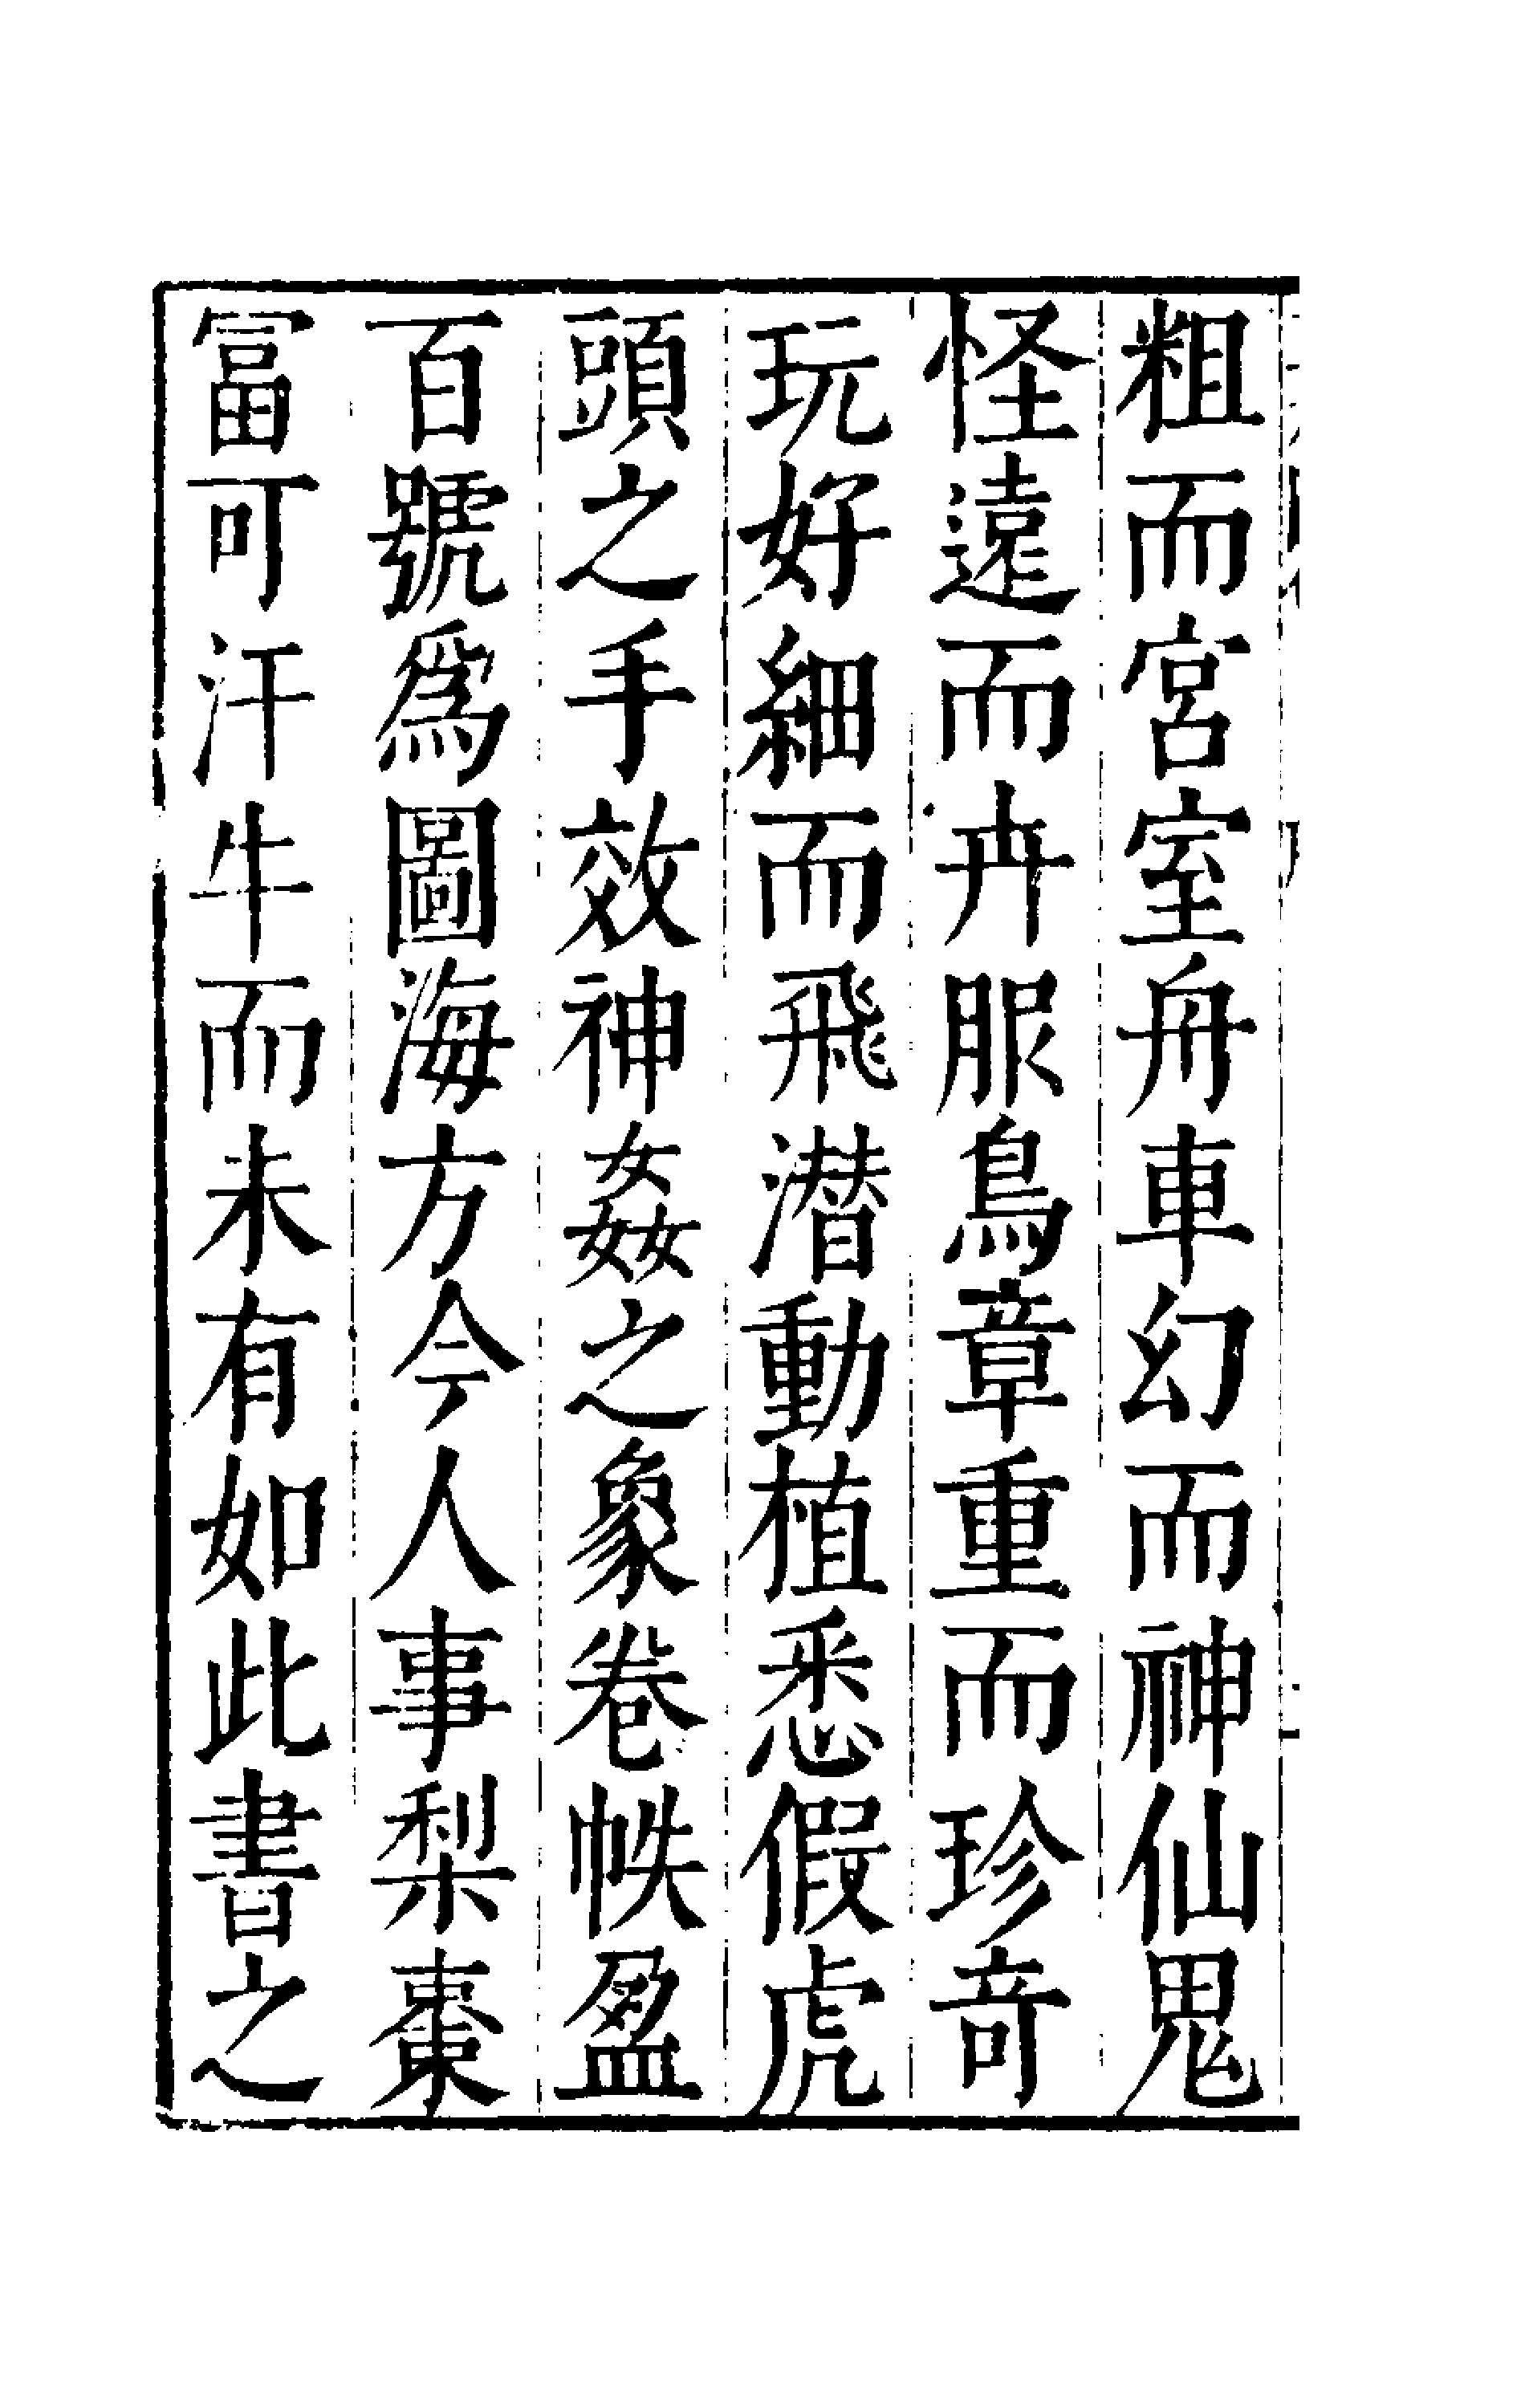 粗而宮室舟車幻而神仙鬼
怪遠而卉服鳥章重而珍竒
玩好細而飛潜動植悉假虎
頭之手效神姦之象卷帙盈
百號為圖海方今人事梨棗
富可汗牛而未有如此書之